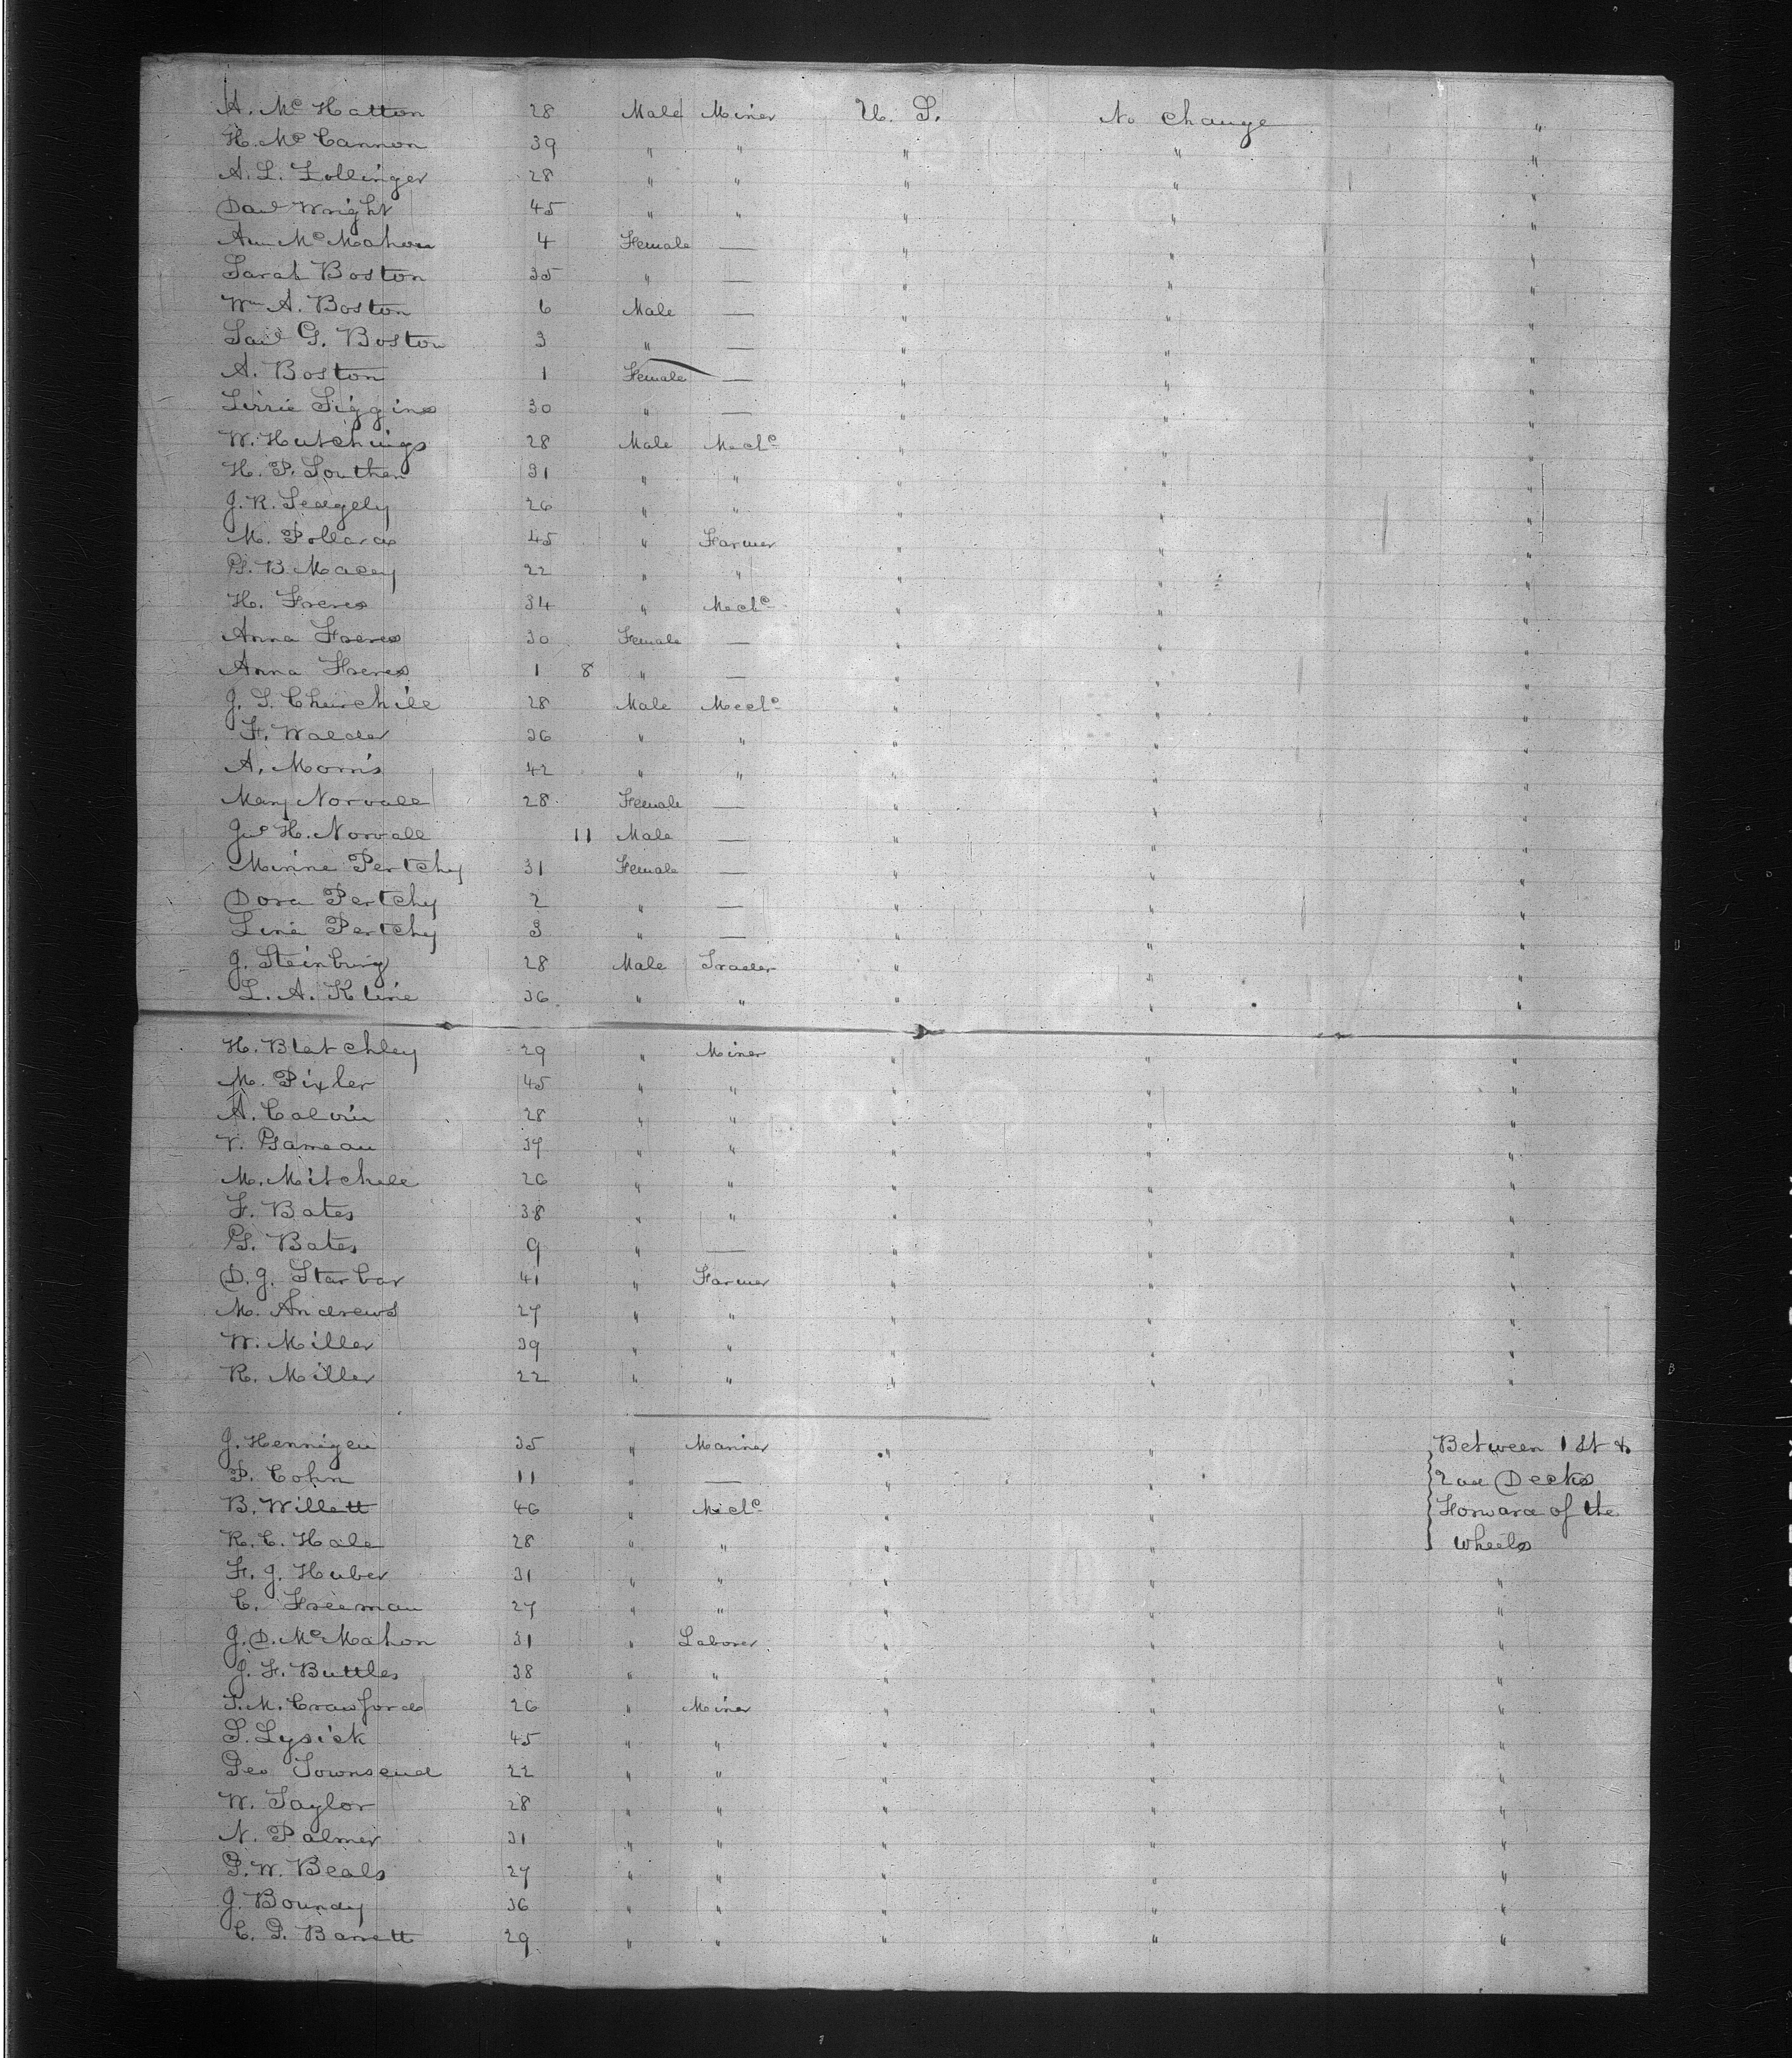 A. Mc Hatton 28 Male Miner U. S. No Change "
H. Mc Cannon 39 " " " " "
A. L. Zollinger 28 " " " " "
Danl Wright 45 " " " " "
Ann Mc Mahon 4 Female — " " "
Sarah Boston 35 " — " " "
Wm A. Boston 6 Male — " " "
Saml G. Boston 3 " — " " "
A. Boston 1 Female — " " "
Lizzie Siggins 30 " — " " "
W. Hutchings 28 Male Mechc " " "
H. P. Southen 31 " " " " "
J. R. Seagely 26 " " " " "
M. Pollard 45 " Farmer " " "
G. B. Macey 22 " " " " "
H. Freres 34 " Mechc " " "
Anna Freres 30 Female — " " "
Anna Freres 1 8 " — " " "
J. S. Churchill 28 Male Mechc " " "
F. Walder 36 " " " " "
A. Morris 42 " " " " "
Mary Norvall 28 Female — " " "
Jno H. Norvall 11 Male — " " "
Minne Pertchy 31 Female — " " "
Dora Pertchy 2 " — " " "
Line Pertchy 3 " — " " "
J. Steinburg 28 Male Trader " " "
L. A. Kline 36 " " " " "
H. Blatchley 29 " Miner " " "
M. Pixler 45 " " " " "
A. Calvin 28 " " " " "
V. Garneau 37 " " " " "
M. Mitchell 26 " " " " "
F. Bates 38 " " " " "
G. Bates 9 " — " " "
D. J. Starbar 41 " Farmer " " "
M. Andrews 27 " " " " "
W. Miller 39 " " " " "
R. Miller 22 " " " " "
J. Hennigen 35 " Mariner " " Between 1st &
P. Cohn 11 " — " " 2nd Decks
B. Willett 46 " Mechc " " Forward of the
R. C. Hale 28 " " " " Wheels
F. J. Huber 31 " " " " "
C. Freeman 27 " " " " "
J. D. Mc Mahon 31 " Laborer " " "
J. F. Buttles 38 " " " " "
T. M. Crawford 26 " Miner " " "
S. Lysick 45 " " " " "
Geo Townsend 22 " " " " "
W. Taylor 28 " " " " "
N. Palmer 31 " " " " "
G. W. Beals 27 " " " " "
J. Boundy 36 " " " " "
C. P. Barrett 29 " " " " "